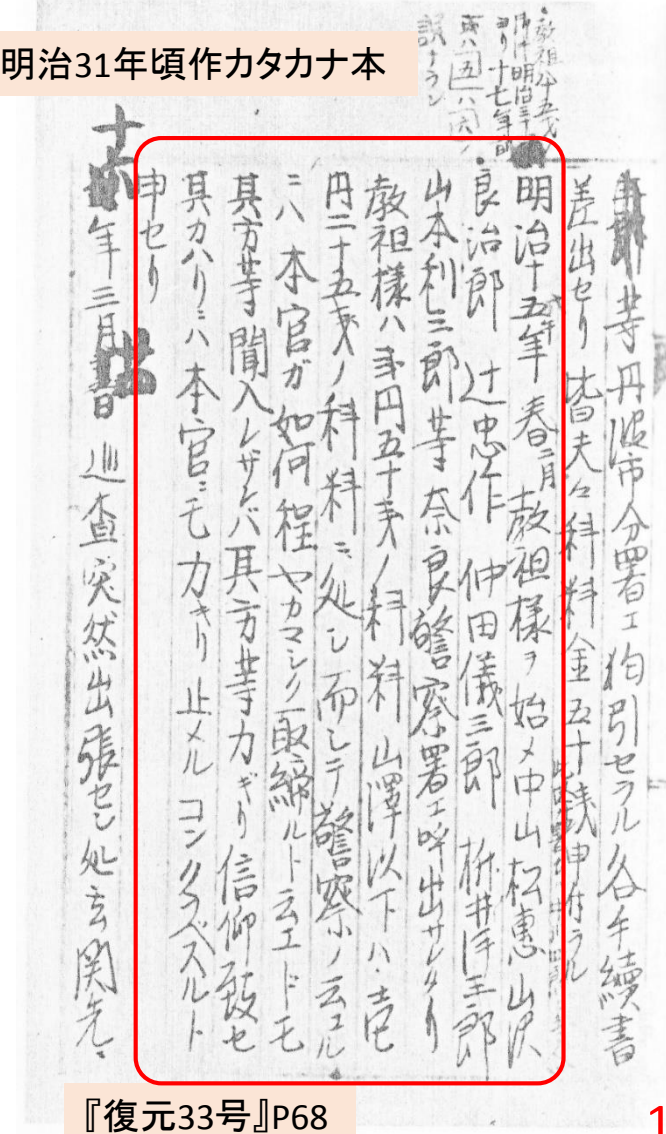 明治31年頃作カタカナ本
・教祖八十五才
十七年前
誤ナラン
等丹波市分署エ拘引セラル各手續書
差出セリ 皆夫々科料金五十銭申付ラル
明治十五年春二月教祖様ヲ始メ中山松惠山沢
良治郎 辻忠作 仲田儀三郎 桝井伊三郎
山本利三郎等奈良警察署エ呼出サレタリ
教祖様ハ弐円五十戋ノ科料 山澤以下ハ壱
円二十五戋ノ科料ニ処シ而シテ警察ノ云エル
ニハ本官ガ如何程ヤカマシク取締ルト云エドモ
其方等聞入レザレバ其方等力ギリ信仰致セ
其カハリニハ本官ニモ力キリ止メル コンクラベスルト
申セリ
十六年三月 日 巡査突然出張セシ処玄関先ニ
『復元33号』P68
1